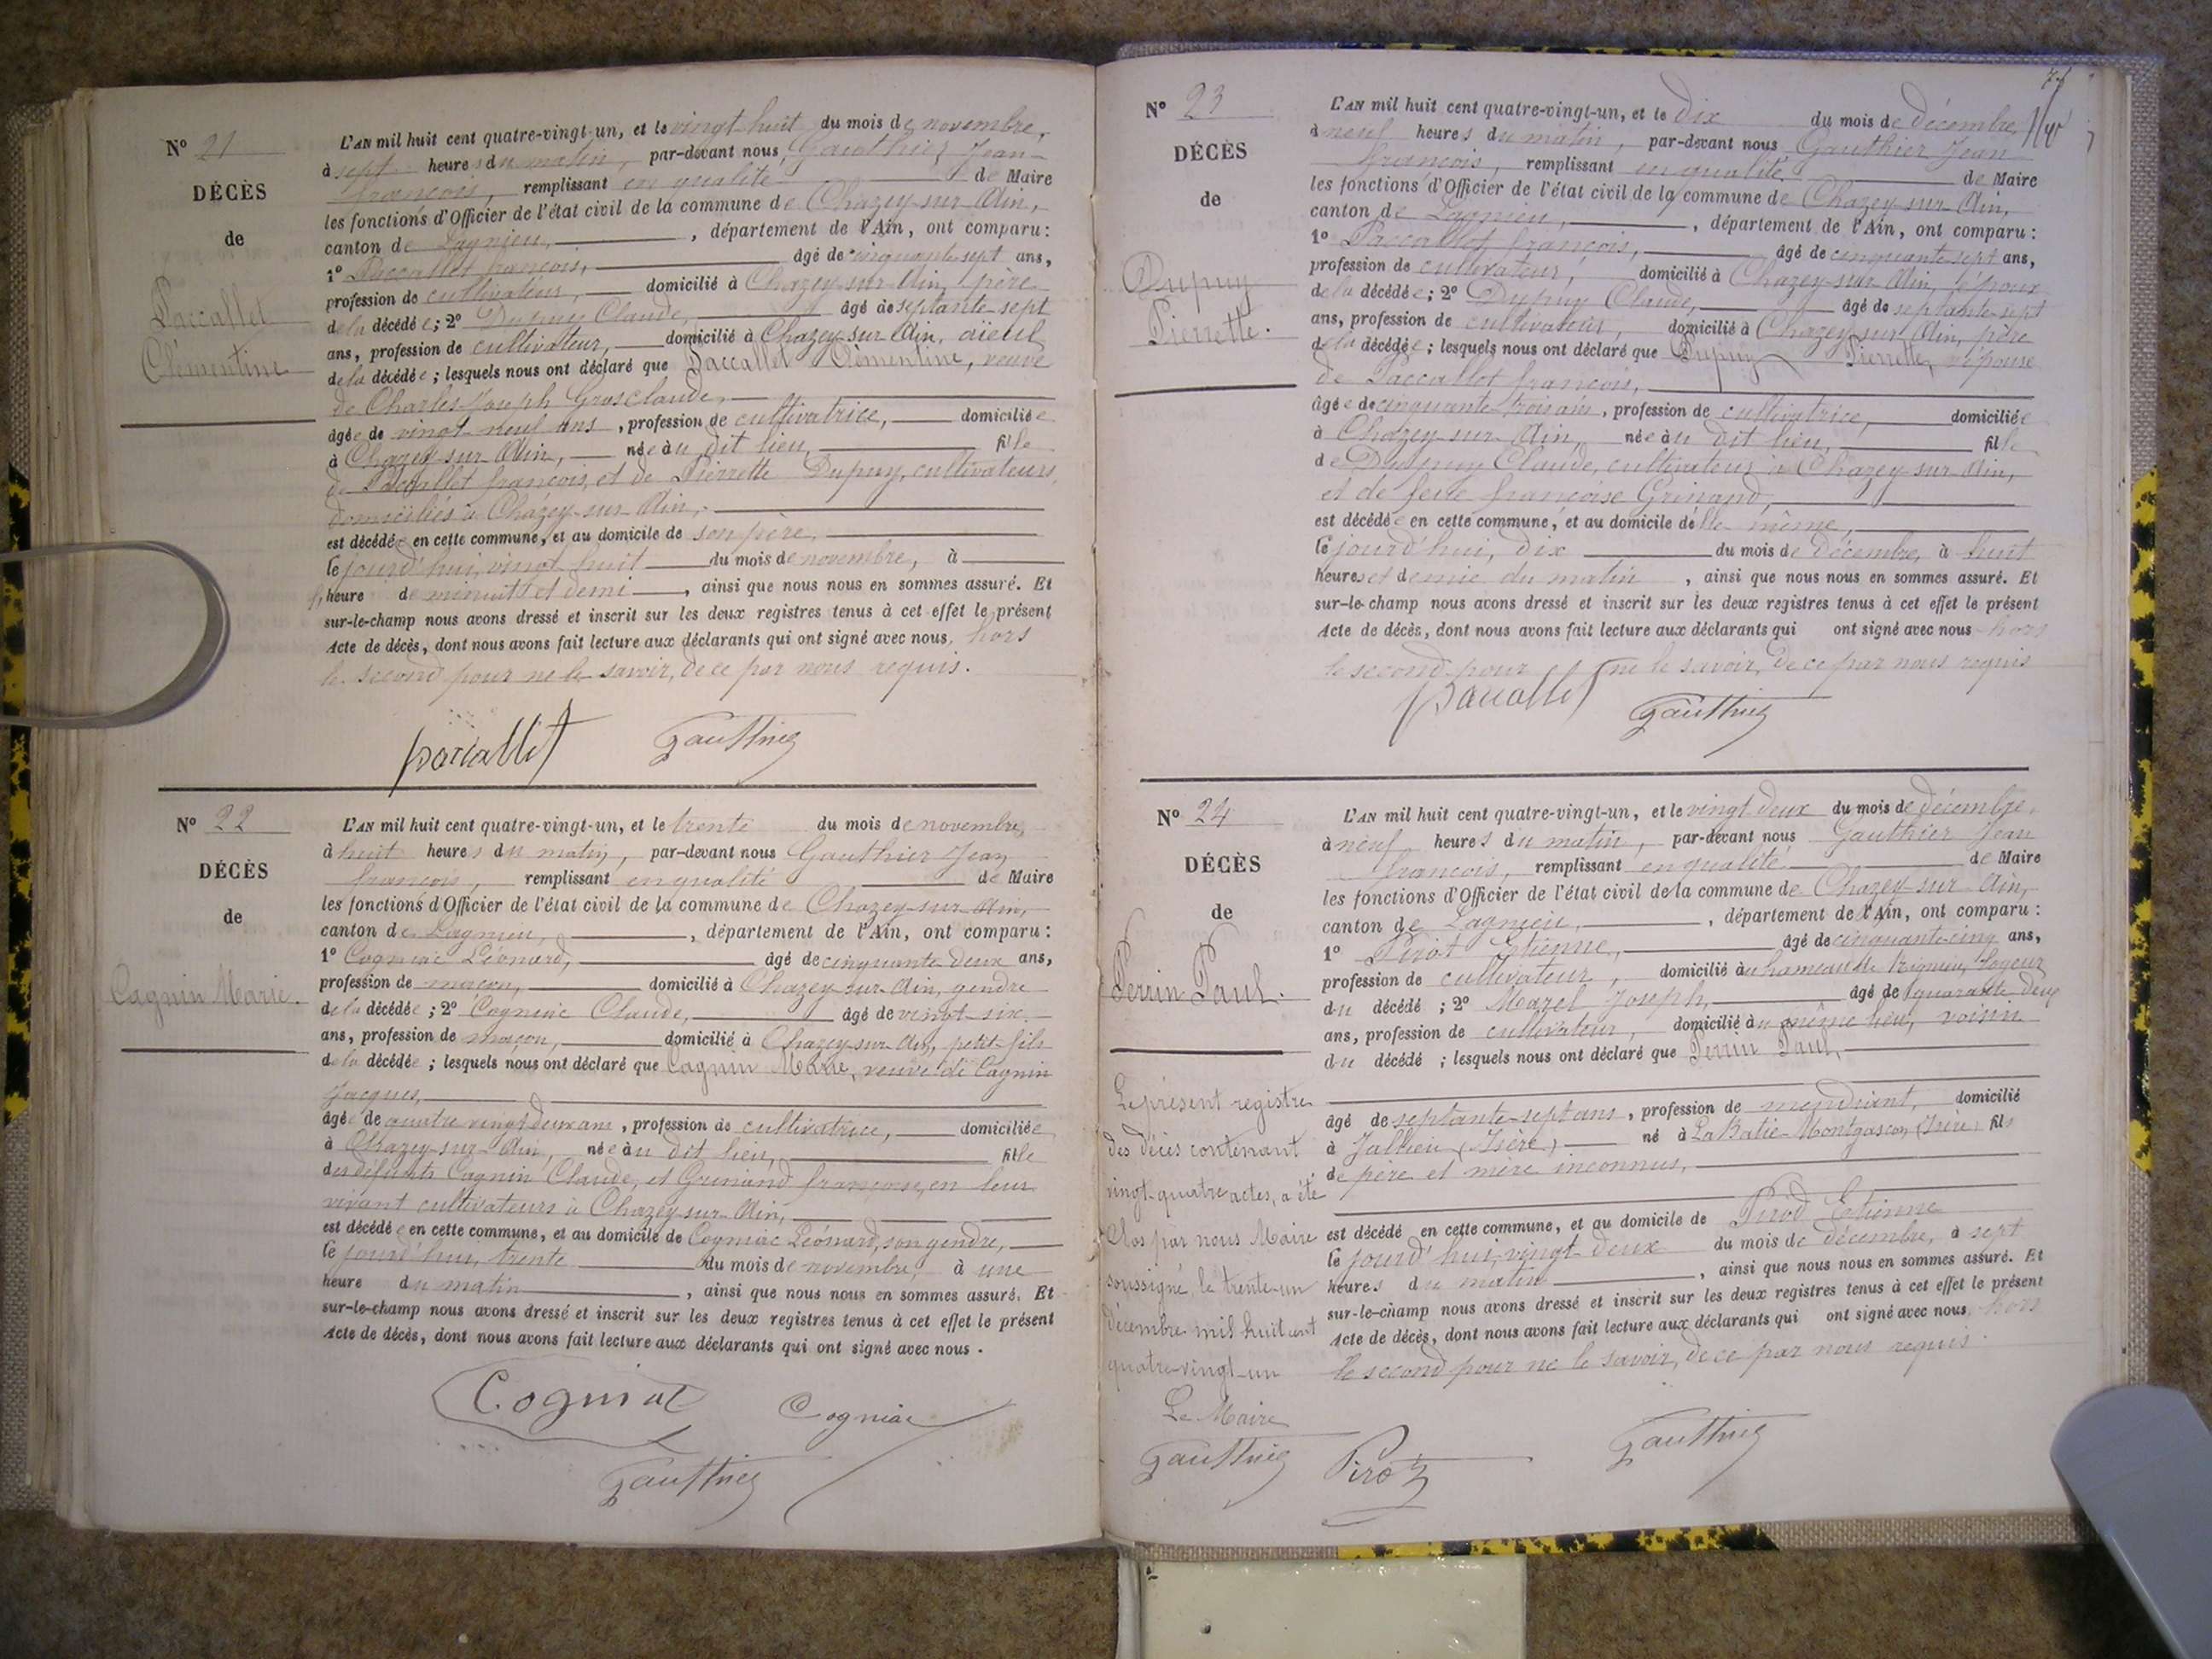 Nº 21
DÉCÈS
de
Paccallet
Clémentine
L'AN mil huit cent quatre-vingt-un, et le vingt-huit du mois de novembre,
à sept heures du matin, par-devant nous Gauthier Jean-
françois, remplissant en qualité de Maire
les fonctions d'Officier de l'état civil de la commune de Chazey-sur-Ain,
canton de Lagnieu, , département de l'Ain, ont comparu :
1º Paccallet françois, âgé de cinquante-sept ans,
profession de cultivateur, domicilié à Chazey-sur-Ain, père
de la décédée ; 2º Dupuy Claude, âgé de septante-sept
ans, profession de cultivateur, domicilié à Chazey-sur-Ain, aïeul
de la décédée ; lesquels nous ont déclaré que Paccallet Clémentine, veuve
de Charles-Joseph Grosclaude,
âgée de vingt-neuf ans, profession de cultivatrice, domiciliée
à Chazey-sur-Ain, née au dit lieu, fille
de Paccallet françois, et de Pierrette Dupuy, cultivateurs,
domiciliés à Chazey-sur-Ain,
est décédée en cette commune, et au domicile de son père,
le jourd'hui, vingt-huit du mois de novembre, à
heure de minuit et demi, ainsi que nous nous en sommes assuré. Et
sur-le-champ nous avons dressé et inscrit sur les deux registres tenus à cet effet le présent
Acte de décès, dont nous avons fait lecture aux déclarants qui ont signé avec nous, hors
le second pour ne le savoir, de ce par nous requis.
paccallet Gauthier
Nº 22
DÉCÈS
de
Cagnin Marie.
L'AN mil huit cent quatre-vingt-un, et le trente du mois de novembre,
à huit heures du matin, par-devant nous Gauthier Jean
françois, remplissant en qualité de Maire
les fonctions d'Officier de l'état civil de la commune de Chazey-sur-Ain,
canton de Lagnieu, , département de l'Ain, ont comparu :
1º Cogniac Léonard, âgé de cinquante-deux ans,
profession de maçon, domicilié à Chazey-sur-Ain, gendre
de la décédée ; 2º Cogniac Claude, âgé de vingt-six
ans, profession de maçon, domicilié à Chazey-sur-Ain, petit-fils
de la décédée ; lesquels nous ont déclaré que Cagnin Marie, veuve de Cagnin
Jacques,
âgée de quatre vingt deux ans, profession de cultivatrice, domiciliée
à Chazey-sur-Ain, née au dit lieu, fille
des défunts Cagnin Claude, et Grinand françoise, en leur
vivant cultivateurs à Chazey-sur-Ain,
est décédée en cette commune, et au domicile de Cogniac Léonard, son gendre,
le jourd'hui, trente du mois de novembre, à une
heure du matin, ainsi que nous nous en sommes assuré. Et
sur-le-champ nous avons dressé et inscrit sur les deux registres tenus à cet effet le présent
Acte de décès, dont nous avons fait lecture aux déclarants qui ont signé avec nous .
Cogniac Cogniac
Gauthier
Nº 23
DÉCÈS
de
Dupuy
Pierrette.
L'AN mil huit cent quatre-vingt-un, et le dix du mois de décembre,
à neuf heures du matin, par-devant nous Gauthier Jean
françois, remplissant en qualité de Maire
les fonctions d'Officier de l'état civil de la commune de Chazey-sur-Ain,
canton de Lagnieu, , département de l'Ain, ont comparu :
1º Paccallet françois, âgé de cinquante-sept ans,
profession de cultivateur, domicilié à Chazey-sur-Ain, époux
de la décédée ; 2º Dupuy Claude, âgé de septante-sept
ans, profession de cultivateur, domicilié à Chazey-sur-Ain, père
de la décédée ; lesquels nous ont déclaré que Dupuy Pierrette, épouse
de Paccallet françois,
âgée de cinquante-trois ans, profession de cultivatrice, domiciliée
à Chazey-sur-Ain, née au dit lieu, fille
de Dupuy Claude, cultivateur à Chazey-sur-Ain,
et de feue françoise Grinand,
est décédée en cette commune, et au domicile d'elle-même,
le jourd'hui, dix du mois de décembre, à huit
heures et demie du matin, ainsi que nous nous en sommes assuré. Et
sur-le-champ nous avons dressé et inscrit sur les deux registres tenus à cet effet le présent
Acte de décès, dont nous avons fait lecture aux déclarants qui ont signé avec nous hors
le second pour ne le savoir, de ce par nous requis
paccallet Gauthier
Nº 24
DÉCÈS
de
Perrin Paul.
L'AN mil huit cent quatre-vingt-un, et le vingt deux du mois de décembre,
à neuf heures du matin, par-devant nous Gauthier Jean
françois, remplissant en qualité de Maire
les fonctions d'Officier de l'état civil de la commune de Chazey-sur-Ain,
canton de Lagnieu, , département de l'Ain, ont comparu :
1º Pirot Etienne, âgé de cinquante-cinq ans,
profession de cultivateur, domicilié au hameau de Rignieu, logeur
du décédé ; 2º Mazel Joseph, âgé de quarante deux
ans, profession de cultivateur, domicilié au même lieu, voisin
du décédé ; lesquels nous ont déclaré que Perrin Paul,
âgé de septante-sept ans, profession de mendiant, domicilié
à Jallieu (Isère) né à La Batie-Montgascon (Isère) fils
de père et mère inconnus,
est décédé en cette commune, et au domicile de Pirod Etienne
le jourd'hui, vingt-deux du mois de décembre, à sept
heures du matin, ainsi que nous nous en sommes assuré. Et
sur-le-champ nous avons dressé et inscrit sur les deux registres tenus à cet effet le présent
Acte de décès, dont nous avons fait lecture aux déclarants qui ont signé avec nous, hors
le second pour ne le savoir, de ce par nous requis.
Le présent registre
des décès contenant
vingt-quatre actes, a été
Clos par nous Maire
soussigné le trente-un
décembre mil huit cent
quatre-vingt-un
Le Maire
Gauthier Pirot Gauthier